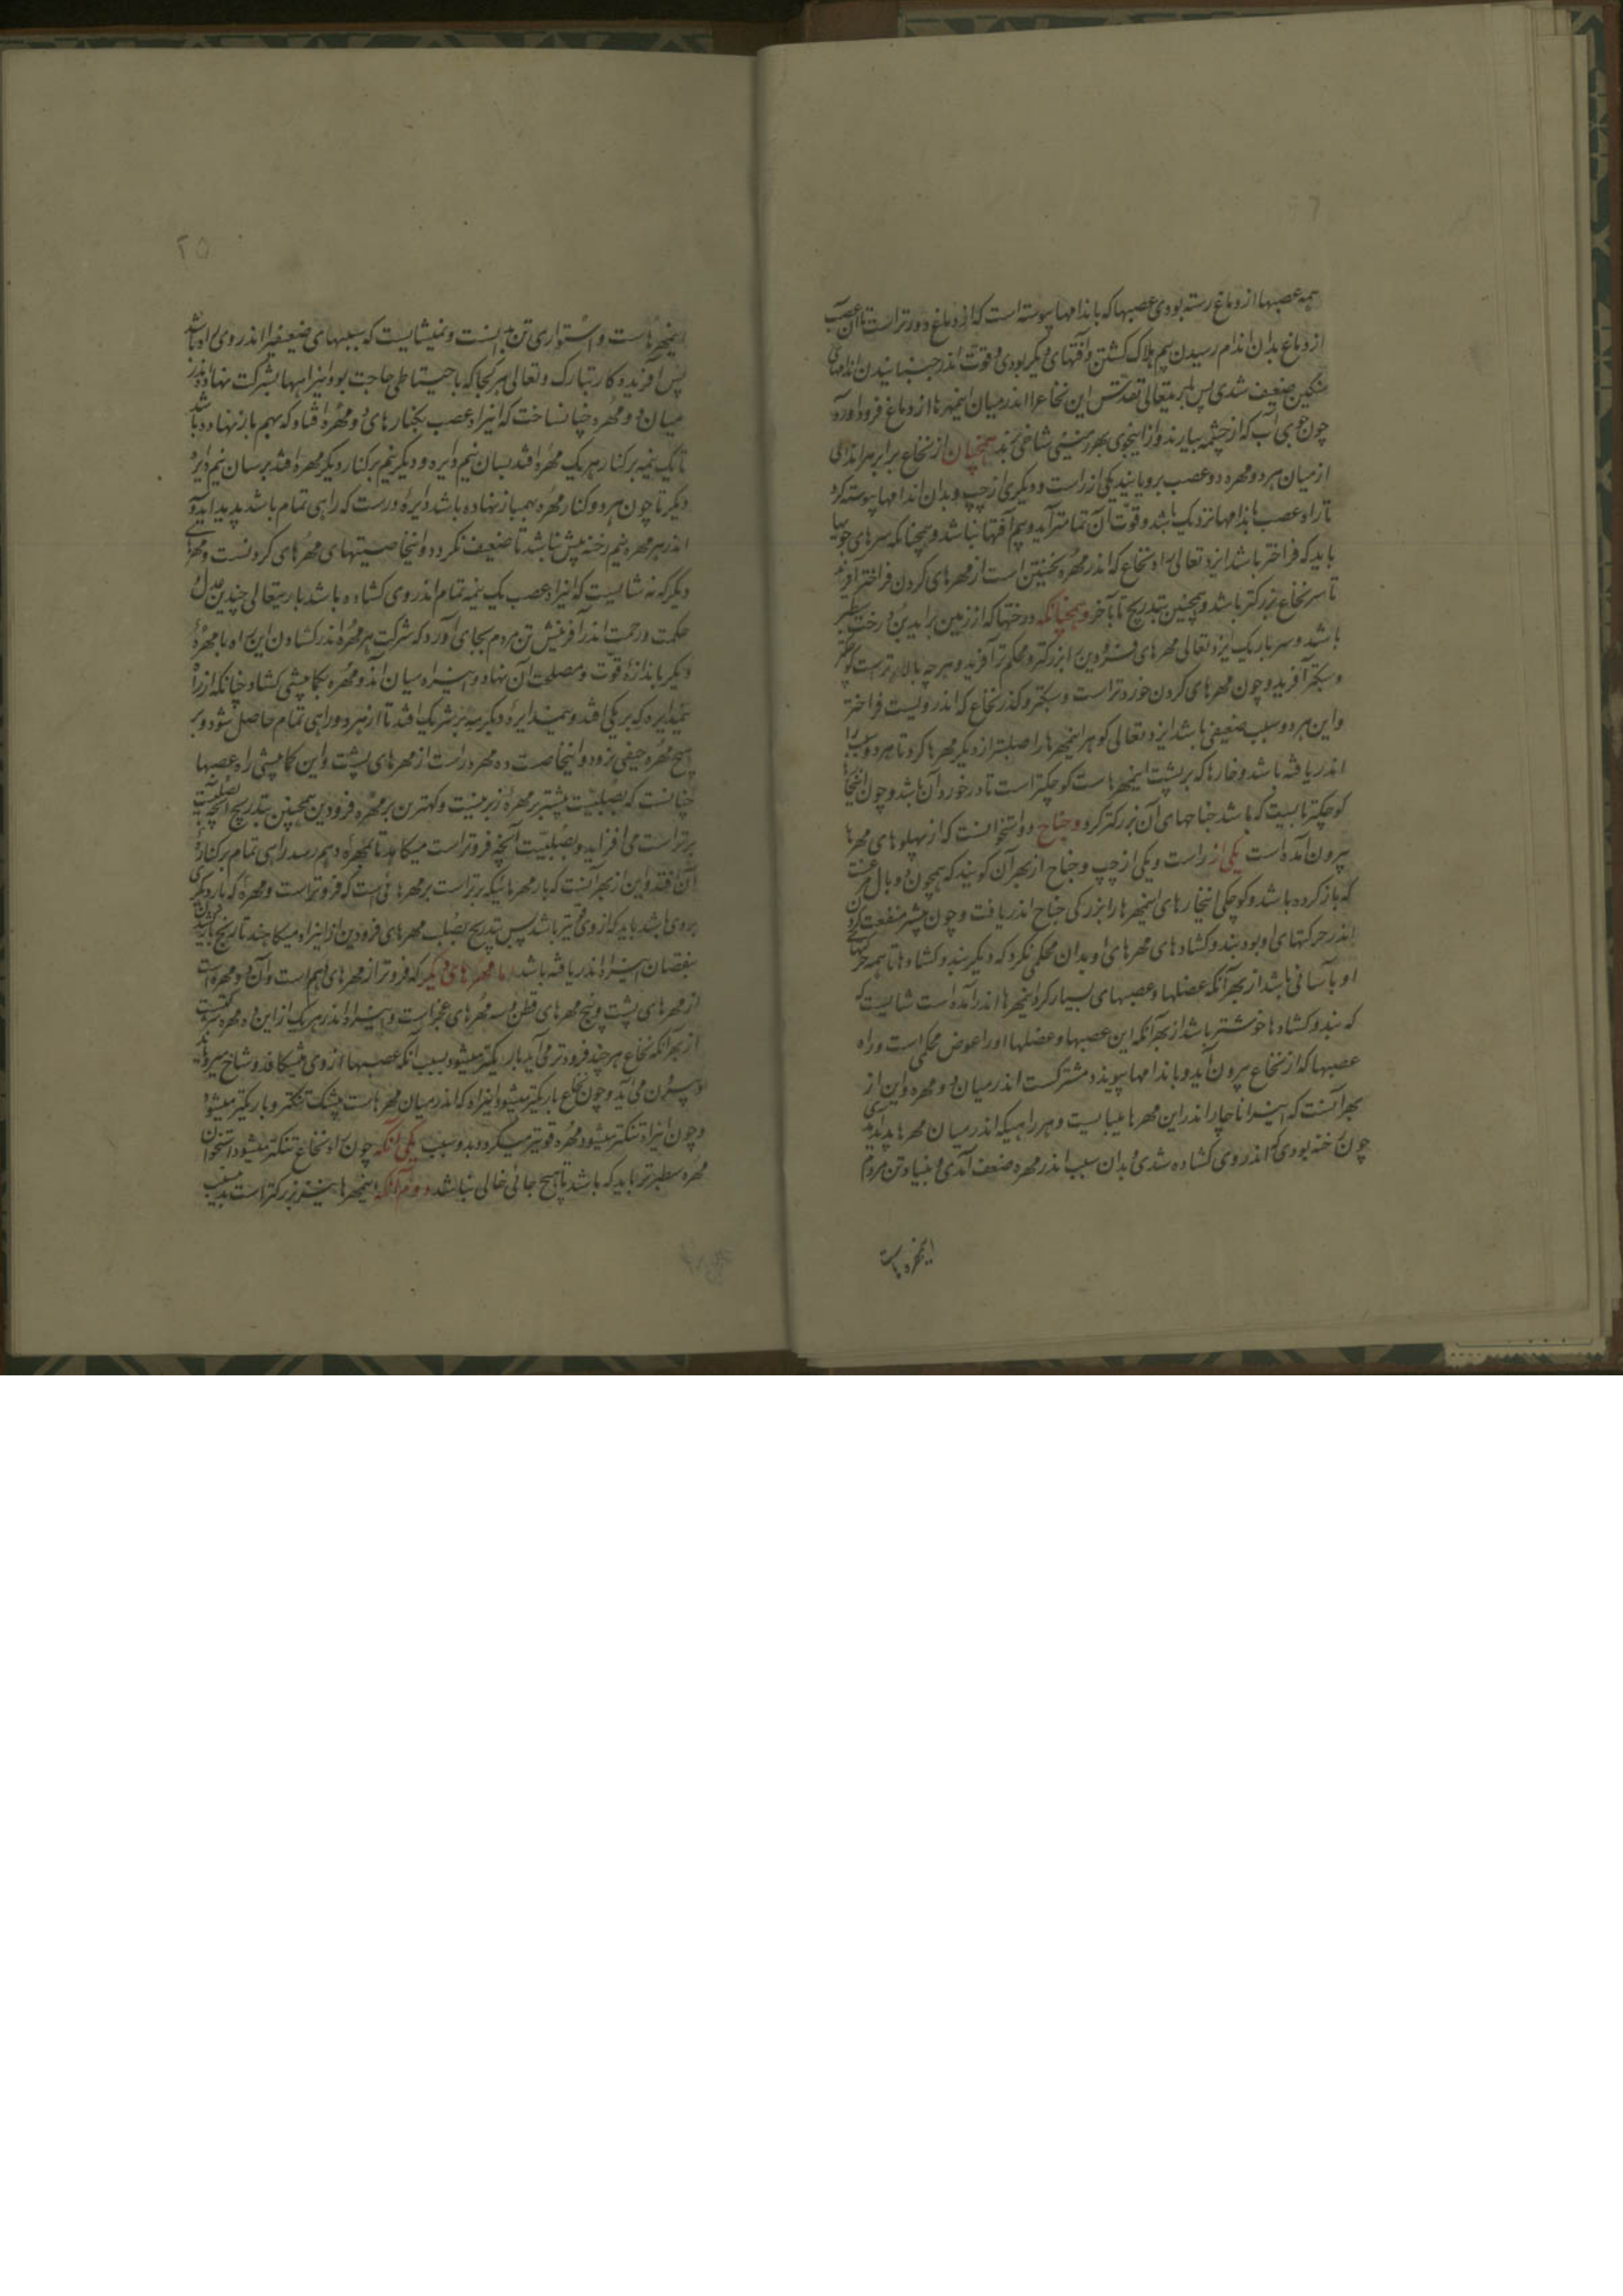 همه عصبها از دماغ رسته بودی عصبها که باندامها پیوسته است که از دماغ دورتر است تا آن عصب
از دماغ بدان اندام رسیدن بیم هلاک گشتن و آفتهای دیگر بودی و قوت اندر جنبانیدن اندامهای
سنگین ضعیف شدی پس ایزد تعالی و تقدس این نخاع را اندر میان این مهرها از دماغ فرود آورد
چون جوی آب که از چشمه بیارند و از این جوی بهر شاخی کنند همچنان از نخاع برابر هر اندامی
از میان هر دو مهره دو عصب برویانید یکی از راست و دیگری از چپ و بدان اندامها پیوسته کرد
تا راه عصب باندامها نزدیک باشد و قوت آن تمامتر آید و بیم آفتها نباشد و همچنانکه سرهای جویها
باید که فراختر باشد ایزد تعالی راه نخاع که اندر مهره نخستین است از مهرهای گردن فراختر آفرید
تا سر نخاع بزرگتر باشد و همچنین بتدریج تا بآخر و همچنانکه درختها که از زمین براید بن درخت سطبر
باشد و سر باریک ایزد تعالی مهرهای فرودین را بزرگتر و محکمتر آفرید و هر چه بالاتر است کوچکتر
و سبکتر آفرید و چون مهرهای گردن خوردتر است و سبکتر و گذر نخاع که اندر ویست فراختر
و این هر دو سبب ضعیفی باشد ایزد تعالی گوهر این مهرها را صلبتر از دیگر مهرها کرد تا هر دو سبب را
اندر یافته باشد و خارها که بر پشت این مهرهاست کوچکتر است تا در خورد آن باشد و چون این خارها
کوچکتر بایست که باشد جناحهای آن بزرگتر کرد و جناح دو استخوانست که از پهلوهای مهرها
بیرون آمده است یکی از راست و یکی از چپ و جناح از بهر آن گویند که همچون دو بال مرغست
که باز کرده باشد و کوچکی این خارهای این مهرها را بزرگی جناح اندر یافت و چون بیشتر منفعت گردن
اندر حرکتهای او بود بند و گشادهای مهرهای او بدان محکمی نکرد که دیگر بند و گشادها تا همه حرکتهای
او بآسانی باشد از بهر آنکه عضلها و عصبهای بسیار گرد این مهرها اندر آمده است شایست که
که بند و گشادها خوشتر باشد از بهر آنکه این عصبها و عضلها او را عوض محکمی است و راه
عصبها که از نخاع بیرون آید و باندامها پیوندد مشترکست اندر میان دو مهره و این از
بهر آنست که این راه ناچار اندر این مهرها میبایست و هر راهی که اندر میان مهرها پدید آمدی
چون رخنه بودی که اندر وی گشاده شدی و بدان سبب اندر مهره ضعف آمدی و بنیاد تن مردم
این مهره هاست
۲۵
این مهرهاست و استواری تن بدانست و نمیشایست که سببهای ضعیفی را اندر وی راه باشد
پس آفریدگار تبارک و تعالی هر کجا که باحتیاطی حاجت بود این راهها بشرکت نهاد و اندر
میان دو مهره چنان ساخت که این راه عصب بکنارهای دو مهره افتاد که بهم باز نهاده باشد
تا یک نیمه بر کنار هر یک مهره افتد بسان نیم دایره و دیگر نیم بر کنار دیگر مهره افتد بر سان نیم دایره
دیگر تا چون هر دو کنار مهره بهم باز نهاده باشد دایره درست که راهی تمام باشد پدید آید و
اندر هر مهره نیم رخنه بیش نباشد تا ضعیف نگردد و این خاصیتهای مهرهای گردنست و مهرهای
دیگر که نه شایست که این راه عصب یک نیمه تمام اندر وی گشاده باشد باریتعالی چندین عدل و
حکمت و رحمت اندر آفرینش تن مردم بجای آورد که شرکت هر مهره اندر گشادن این راه با مهره
دیگر باندازه قوت و مصلحت آن نهاد و این راه میان آن دو مهره بکما بیشی گشاد چنانکه از راه
نیم دایره که بر یکی افتد و نیم دایره دیگر که بر شریک افتد تا از هر دو راهی تمام حاصل شود و بر
هیچ مهره حیفی نرود و این خاصیت ده مهره راست از مهرهای پشت و این کما بیشی راه عصبها
چنانست که بصلبیت بیشتر بر مهره زبرینست و کمترین بر مهره فرودین همچنین بتدریج آنچه بصلبیت
برتر است می افزاید و بصلبیت آنچه فروتر است میکاهد تا بمهره دهم رسد راهی تمام بر کناره
آن افتد و این از بهر آنست که بار مهرهائیکه برتر است بر مهرهائی است که فروتر است و مهره که بار دیگری
بروی باشد باید که از وی قویتر باشد پس بتدریج بصلب مهرهای فرودین از این راه میکاهند تا رنج بار کشیدن
بنقصان این راه اندر یافته باشد اما مهرهای دیگر که فروتر از مهرهای دهم است و آن دو مهره است
از مهرهای پشت و پنج مهرهای قطن و سه مهرهای عجز است و این راه اندر هر یک از این ده مهره کمتر است
از بهر آنکه نخاع هر چند فرودتر می آید باریکتر میشود بسبب آنکه عصبها از وی میشکافد و شاخ میزند
و بیرون می آید و چون نخاع باریکتر میشود این راه که اندر میان مهرهاست بیشک تنگتر و باریکتر میشود
و چون این راه تنگتر میشود مهره قویتر میگردد بدو سبب یکی آنکه چون راه نخاع تنگتر میشود استخوان
مهره سطبرتر باید که باشد تا هیچ جائی خالی نباشد دوم آنکه این مهرها نیز بزرگتر است بدین سبب